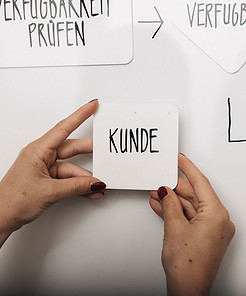 VERFÜGBARKEIT
PRÜFEN
VERFÜGB
KUNDE